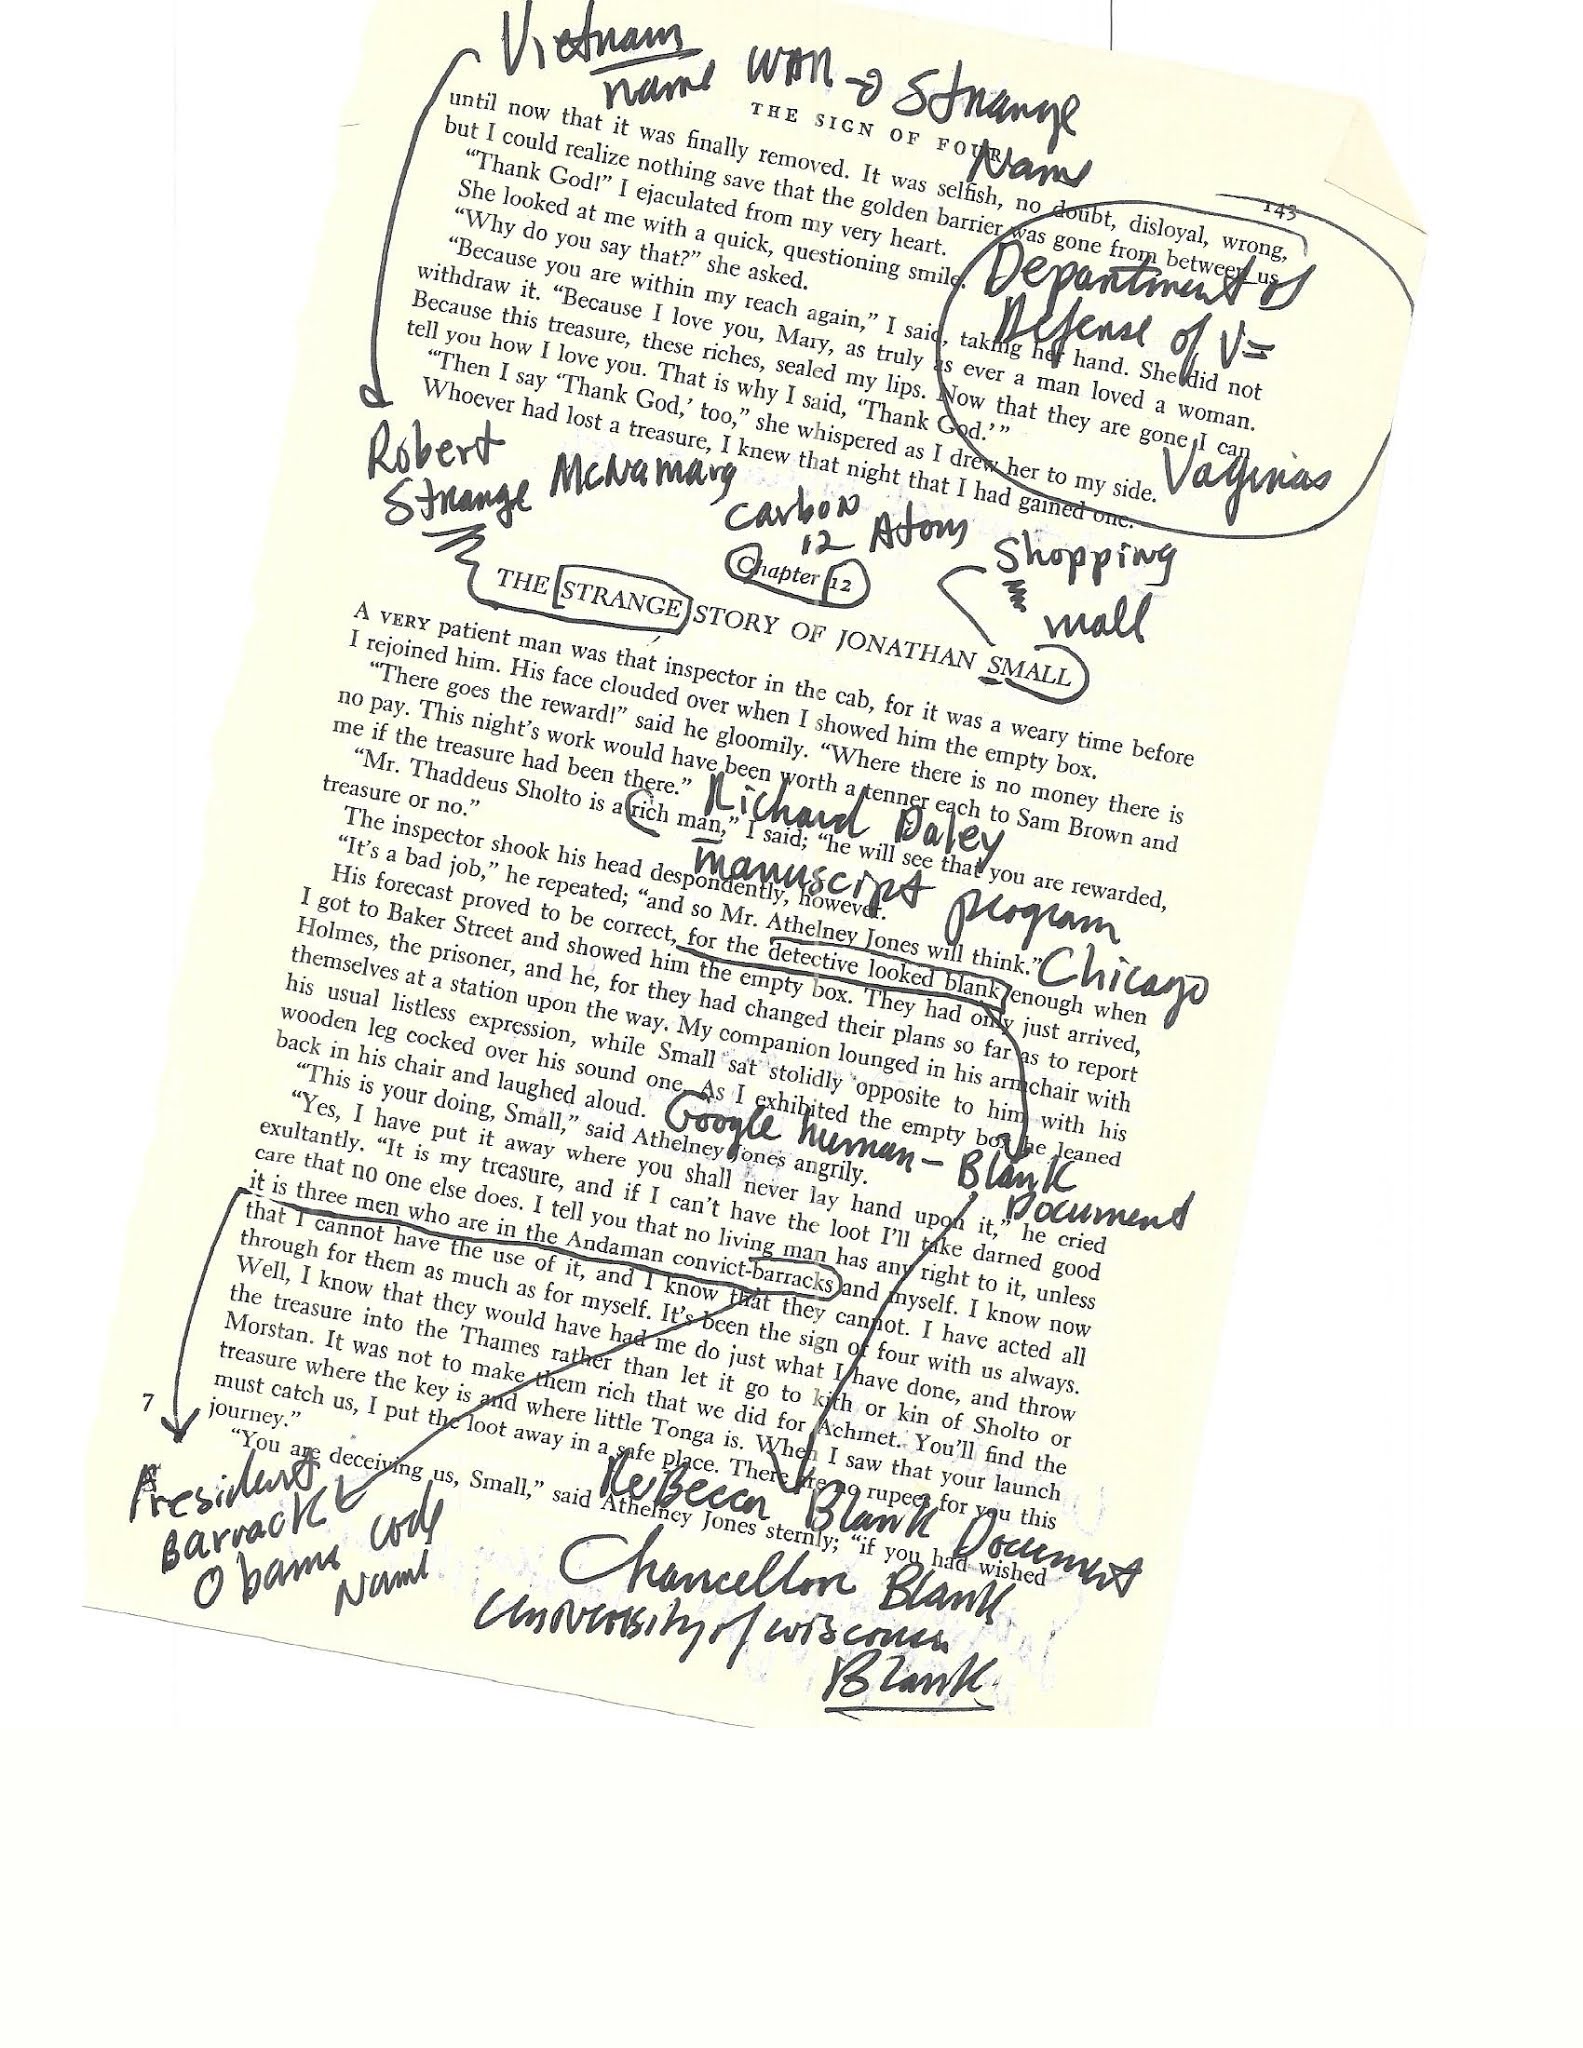 Vietnam
name War → Strange
Name
THE SIGN OF FOUR
143
until now that it was finally removed. It was selfish, no doubt, disloyal, wrong,
but I could realize nothing save that the golden barrier was gone from between us.
“Thank God!” I ejaculated from my very heart.
She looked at me with a quick, questioning smile.
“Why do you say that?” she asked.
“Because you are within my reach again,” I said, taking her hand. She did not
withdraw it. “Because I love you, Mary, as truly as ever a man loved a woman.
Because this treasure, these riches, sealed my lips. Now that they are gone I can
tell you how I love you. That is why I said, ‘Thank God.’”
“Then I say ‘Thank God,’ too,” she whispered as I drew her to my side.
Whoever had lost a treasure, I knew that night that I had gained one.
Department of
Defense of V=
Vaginas
Robert
Strange McNamara
Carbon
12 Atom
Shopping
mall
Chapter 12
THE STRANGE STORY OF JONATHAN SMALL
A VERY patient man was that inspector in the cab, for it was a weary time before
I rejoined him. His face clouded over when I showed him the empty box.
“There goes the reward!” said he gloomily. “Where there is no money there is
no pay. This night’s work would have been worth a tenner each to Sam Brown and
me if the treasure had been there.”
“Mr. Thaddeus Sholto is a rich man,” I said; “he will see that you are rewarded,
treasure or no.”
Richard Daley
manuscript program
Chicago
The inspector shook his head despondently, however.
“It’s a bad job,” he repeated; “and so Mr. Athelney Jones will think.”
His forecast proved to be correct, for the detective looked blank enough when
I got to Baker Street and showed him the empty box. They had only just arrived,
Holmes, the prisoner, and he, for they had changed their plans so far as to report
themselves at a station upon the way. My companion lounged in his armchair with
his usual listless expression, while Small sat stolidly opposite to him with his
wooden leg cocked over his sound one. As I exhibited the empty box he leaned
back in his chair and laughed aloud.
Google human – Blank
Document
“This is your doing, Small,” said Athelney Jones angrily.
“Yes, I have put it away where you shall never lay hand upon it,” he cried
exultantly. “It is my treasure, and if I can’t have the loot I’ll take darned good
care that no one else does. I tell you that no living man has any right to it, unless
it is three men who are in the Andaman convict-barracks and myself. I know now
that I cannot have the use of it, and I know that they cannot. I have acted all
through for them as much as for myself. It’s been the sign of four with us always.
Well, I know that they would have had me do just what I have done, and throw
the treasure into the Thames rather than let it go to kith or kin of Sholto or
Morstan. It was not to make them rich that we did for Achmet. You’ll find the
treasure where the key is and where little Tonga is. When I saw that your launch
must catch us, I put the loot away in a safe place. There are no rupees for you this
journey.”
7
“You are deceiving us, Small,” said Athelney Jones sternly; “if you had wished
President
Barrack
Obama code
Name
ReBecca Blank Document
Chancellor Blank
University of Wisconsin
Blank